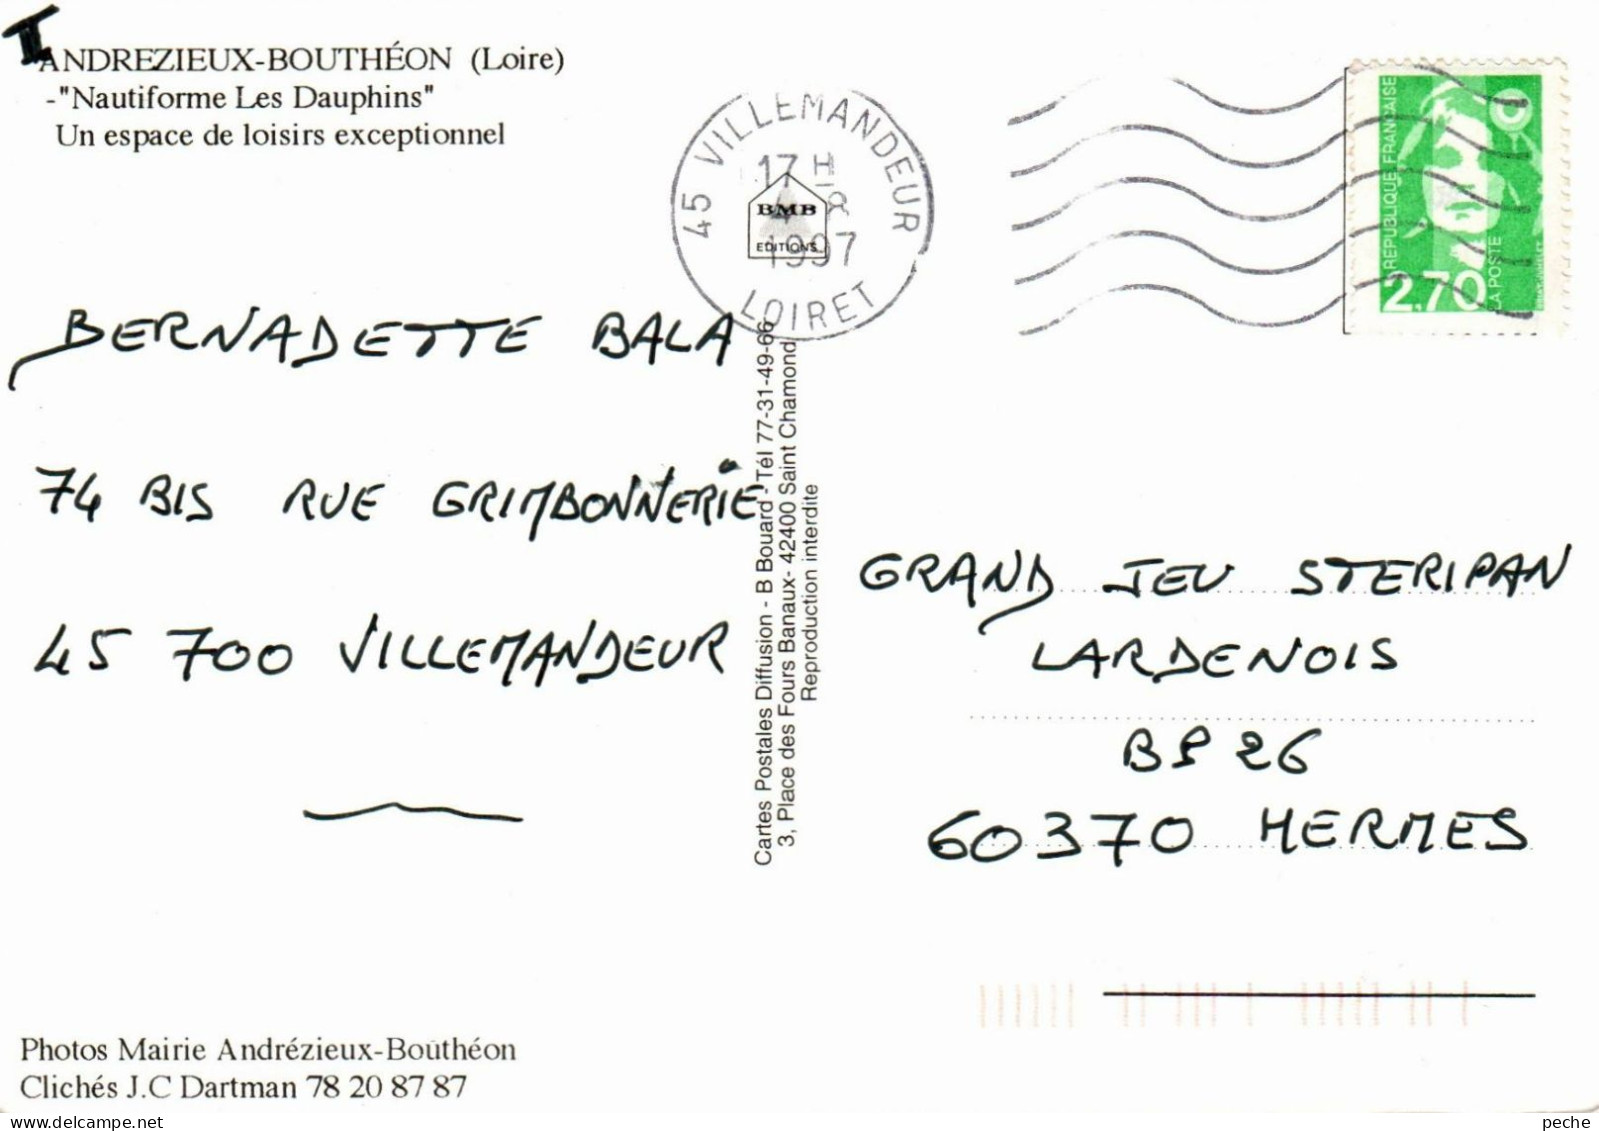 ANDREZIEUX-BOUTHÉON (Loire)
-"Nautiforme Les Dauphins"
Un espace de loisirs exceptionnel
45 VILLEMANDEUR
17 H
1997
LOIRET
BMB
EDITIONS
REPUBLIQUE FRANÇAISE
2,70
LA POSTE
BERNADETTE BALA
74 BIS RUE GRIMBONNERIE
45 700 VILLEMANDEUR
Cartes Postales Diffusion - B Bouard - Tél 77-31-49-66
3, Place des Fours Banaux- 42400 Saint Chamond
Reproduction interdite
GRAND JEU STERIPAN
LARDENOIS
BP 26
60370 HERMES
Photos Mairie Andrézieux-Bouthéon
Clichés J.C Dartman 78 20 87 87
delcampe.net
peche